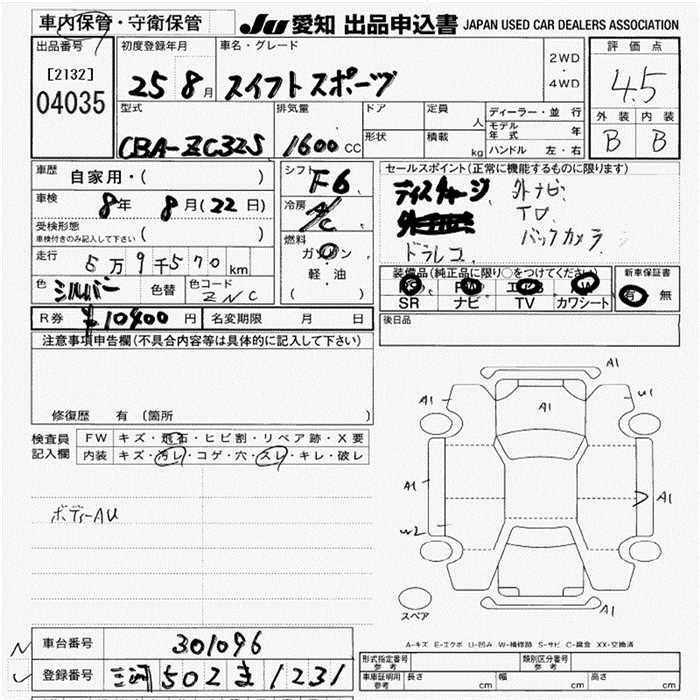 車内保管・守衛保管
JU 愛知 出品申込書 JAPAN USED CAR DEALERS ASSOCIATION
出品番号
[2132]
04035
初度登録年月
25 8月
車名・グレード
スイフトスポーツ
2WD
・
4WD
評価点
4.5
外装 内装
B B
型式
CBA-ZC32S
排気量
1600cc
ドア
形状
定員
人
積載
kg
ディーラー・並行
モデル年式 年
ハンドル 左・右
車歴
自家用・( )
車検
8年 8月(22日)
受検形態
車検付きのみ記入して下さい ( )
走行
5万9千570km
色
シルバー
色替
色コード
ZNC
シフト
F6
冷房
A/C
燃料
ガソリン
軽・油
( )
セールスポイント(正常に機能するものに限ります)
ディスチャージ
外ナビ
TV
バックカメラ
ドラレコ
装備品(純正品に限り○をつけてください)
PS PW エアB AW
SR ナビ TV カワシート
新車保証書
有 無
R券
¥10400円
名変期限 月 日
後日品
注意事項申告欄(不具合内容等は具体的に記入して下さい)
修復歴 有 (箇所
検査員
記入欄
FW キズ・飛石・ヒビ割・リペア跡・X要
内装 キズ・汚レ・コゲ・穴・スレ・キレ・破レ
ボディーAU
A1
A1
A1
U1
A1
A1
W2
A1
スペア
A-キズ E-エクボ U-凹み W-補修跡 S-サビ C-腐食 XX-交換済
車台番号
301096
登録番号
三河 502 ま 1231
形式指定番号
参考
類別区分番号
参考
車庫証明用
参考
長さ cm
幅 cm
高さ cm